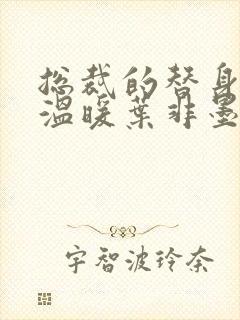 总裁的替身
温暖叶非墨
宇智波玲奈